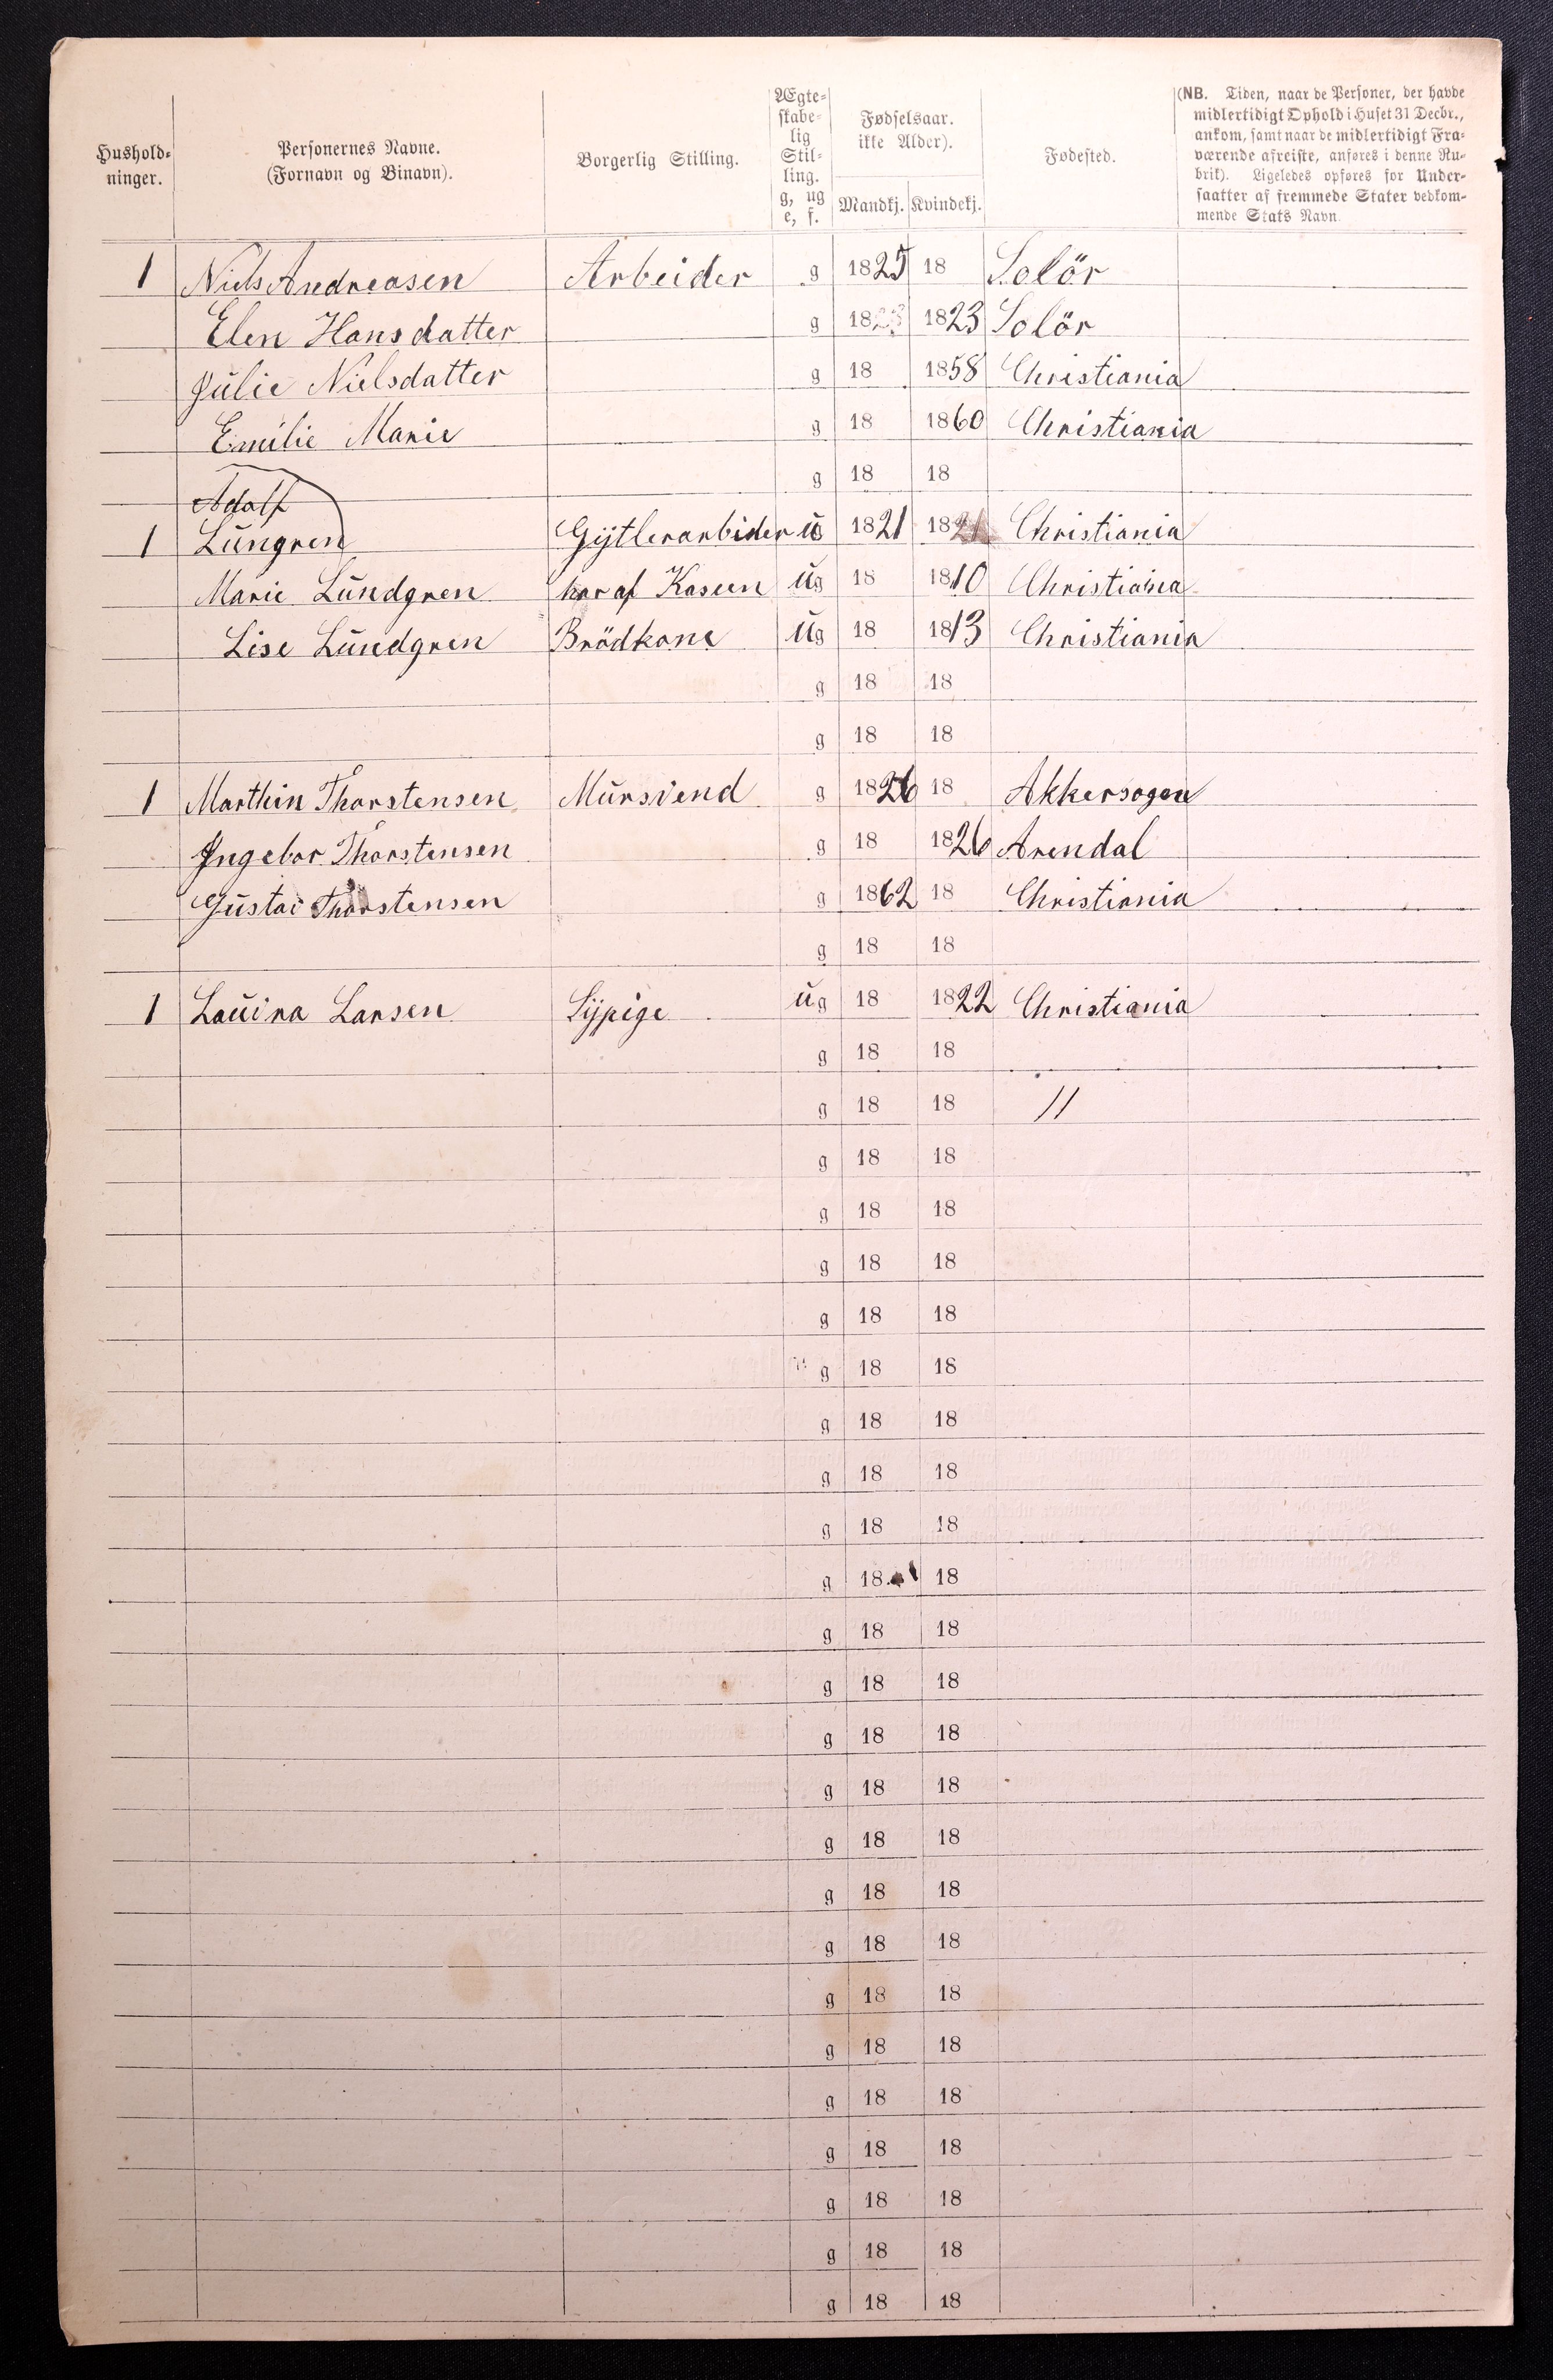 Hushold-
ninger.
Personernes Navne.
(Fornavn og Binavn).
Borgerlig Stilling.
Ægte-
skabe-
lig
Stil-
ling.
g, ug
e, f.
Fødselsaar.
ikke Alder).
Mandkj. Kvindekj.
Fødested.
(NB. Tiden, naar de Personer, der havde
midlertidigt Ophold i Huset 31 Decbr.,
ankom, samt naar de midlertidigt Fra-
værende afreiste, anføres i denne Ru-
brik). Ligeledes opføres for Under-
saatter af fremmede Stater vedkom-
mende Stats Navn.
1 Niels Andreasen Arbeider g 1825 18 Solör
Elen Hansdatter g 18 1823 Solör
Julie Nielsdatter g 18 1858 Christiania
Emilie Marie g 18 1860 Christiania
g 18 18
Adolf
1 Lungren Gÿtlerarbider u 1821 18 Christiania
Marie Lundgren har af Kasen ug 18 1810 Christiania
Lise Lundgren Brödkone ug 18 1813 Christiania
g 18 18
g 18 18
1 Marthin Thorstensen Mursvend g 1826 18 Akkersogen
Ingebor Thorstensen g 18 1826 Arendal
Gustav Thorstensen g 1862 18 Christiania
g 18 18
1 Lauira Larsen Sÿpige ug 18 1822 Christiania
g 18 18
g 18 18 11
g 18 18
g 18 18
g 18 18
g 18 18
g 18 18
g 18 18
g 18 18
g 18 18
g 18 18
g 18 18
g 18 18
g 18 18
g 18 18
g 18 18
g 18 18
g 18 18
g 18 18
g 18 18
g 18 18
g 18 18
g 18 18
g 18 18
g 18 18